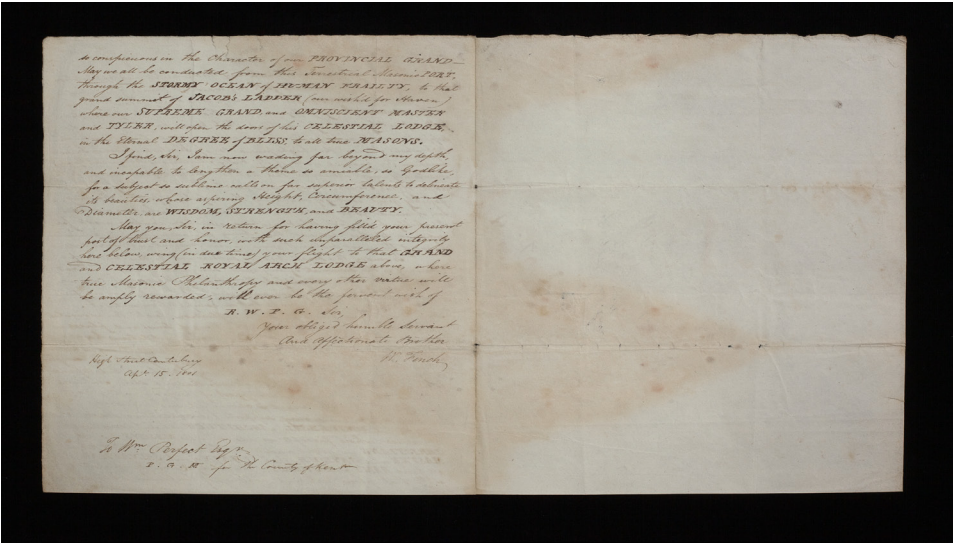 so conspicuous in the Character of our PROVINCIAL GRAND—
May we all be conducted from this Terrestrial Masonic PORT,
through the STORMY OCEAN of HUMAN FRAILTY, to that
grand summit of JACOB's LADDER (our wished for Haven)
where our SUPREME GRAND, and OMNISCIENT MASTER
and TYLER, will open the doors of his CELESTIAL LODGE,
in the Eternal DEGREE of BLISS, to all true MASONS.
I find, Sir, I am now wading far beyond my depth,
and incapable to lengthen a theme so amiable, so Godlike,
for a subject so sublime calls on far superior talents to delineate
its beauties, whose aspiring Height, Circumference, and
Diameter are WISDOM, STRENGTH, and BEAUTY.
May you, Sir, in return for having fill'd your present
post of trust and honor, with such unparalleled integrity
here below, wing (in due time) your flight to that GRAND
and CELESTIAL ROYAL ARCH LODGE above, where
true Masonic Philanthropy and every other virtue will
be amply rewarded, will ever be the fervent wish of
R. W. P. G. Sir,
Your obliged humble Servant
And Affectionate Brother
W. Finch,
High Street Canterbury
Apl. 15. 1801
To Wm Perfect Esqr.
P. G. M for the County of Kent